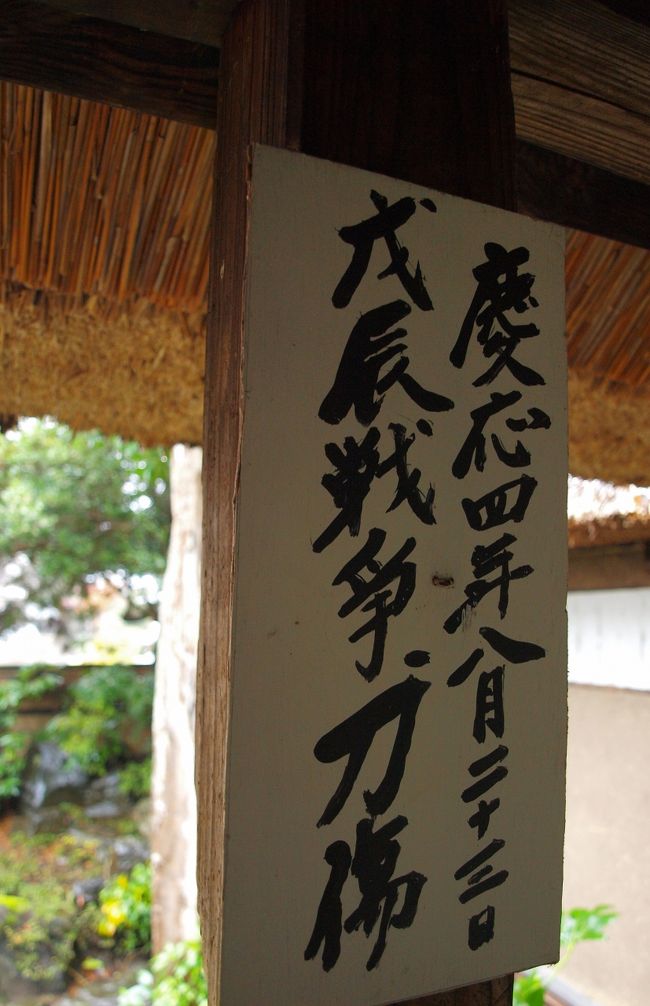 慶応四年八月二十三日
戊辰戦争刀傷